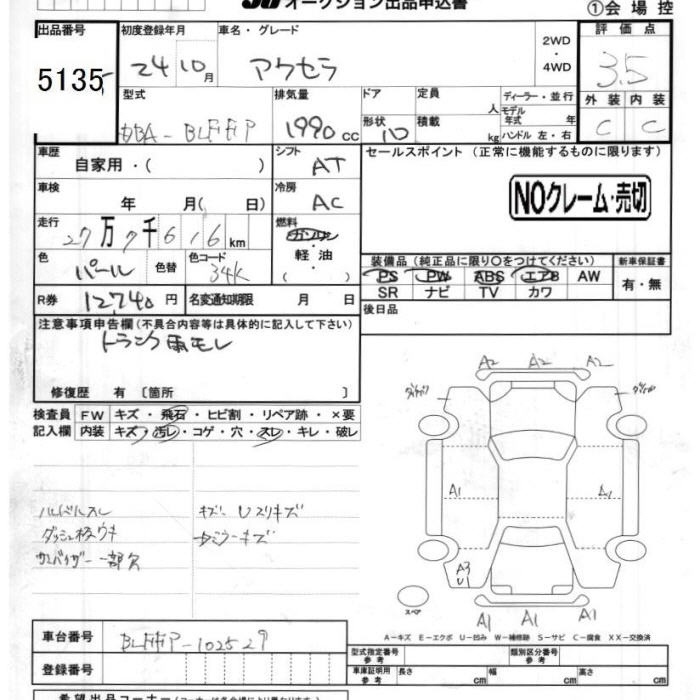 オークション出品申込書
①会場控
出品番号 初度登録年月 車名・グレード 2WD・4WD 評価点
5135 24年10月 アクセラ 3.5
型式 排気量 ドア 定員 人 ディーラー・並行 外装 内装
モデル年式 年
DBA-BLFFP 1990cc 形状 10 積載 kg ハンドル 左・右 C C
車歴 自家用・( ) シフト AT セールスポイント (正常に機能するものに限ります)
車検 年 月( 日) 冷房 AC
NOクレーム・売切
走行 27万7千616km 燃料 ガソリン・軽油・( )
色 パール 色替 色コード 34K
装備品 (純正品に限り〇をつけてください) 新車保証書
PS PW ABS エアB AW 有・無
SR ナビ TV カワ
R券 12,740円 名変通知期限 月 日 後日品
注意事項申告欄 (不具合内容等は具体的に記入して下さい)
トランク雨モレ
修復歴 有 〔箇所 〕
検査員記入欄 FW キズ・飛石・ヒビ割・リペア跡・×要
内装 キズ・汚レ・コゲ・穴・スレ・キレ・破レ
ハンドルスレ
ダッシュ板ウキ
サンバイザー一部欠
キズ・Uスリキズ
ミラーキズ
A2 A2 A2
A1 A1
A3
U1
A1 A1
スペア
A−キズ E−エクボ U−凹み W−補修跡 S−サビ C−腐食 XX−交換済
車台番号 BLFFP-102529
型式指定番号 参考 類別区分番号 参考
登録番号 車庫証明用 参考 長さ cm 幅 cm 高さ cm
希望出品コーナー